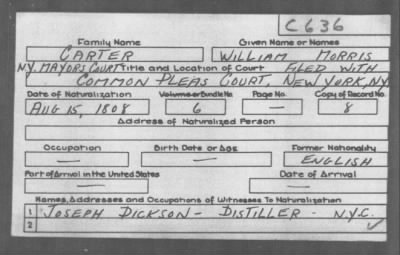 C636
Family Name Given Name or Names
CARTER WILLIAM MORRIS
N.Y. MAYORS COURT Title and Location of Court FILED WITH
COMMON PLEAS COURT, NEW YORK, N.Y.
Date of Naturalization Volume or Bundle No. Page No. Copy of Record No.
AUG 15, 1808 6 — 8
Address of Naturalized Person
Occupation Birth Date or Age Former Nationality
— — ENGLISH
Port of Arrival in the United States Date of Arrival
— —
Names, Addresses and Occupations of Witnesses To Naturalization
1 JOSEPH DICKSON - DISTILLER - N.Y.C.
2 ✓